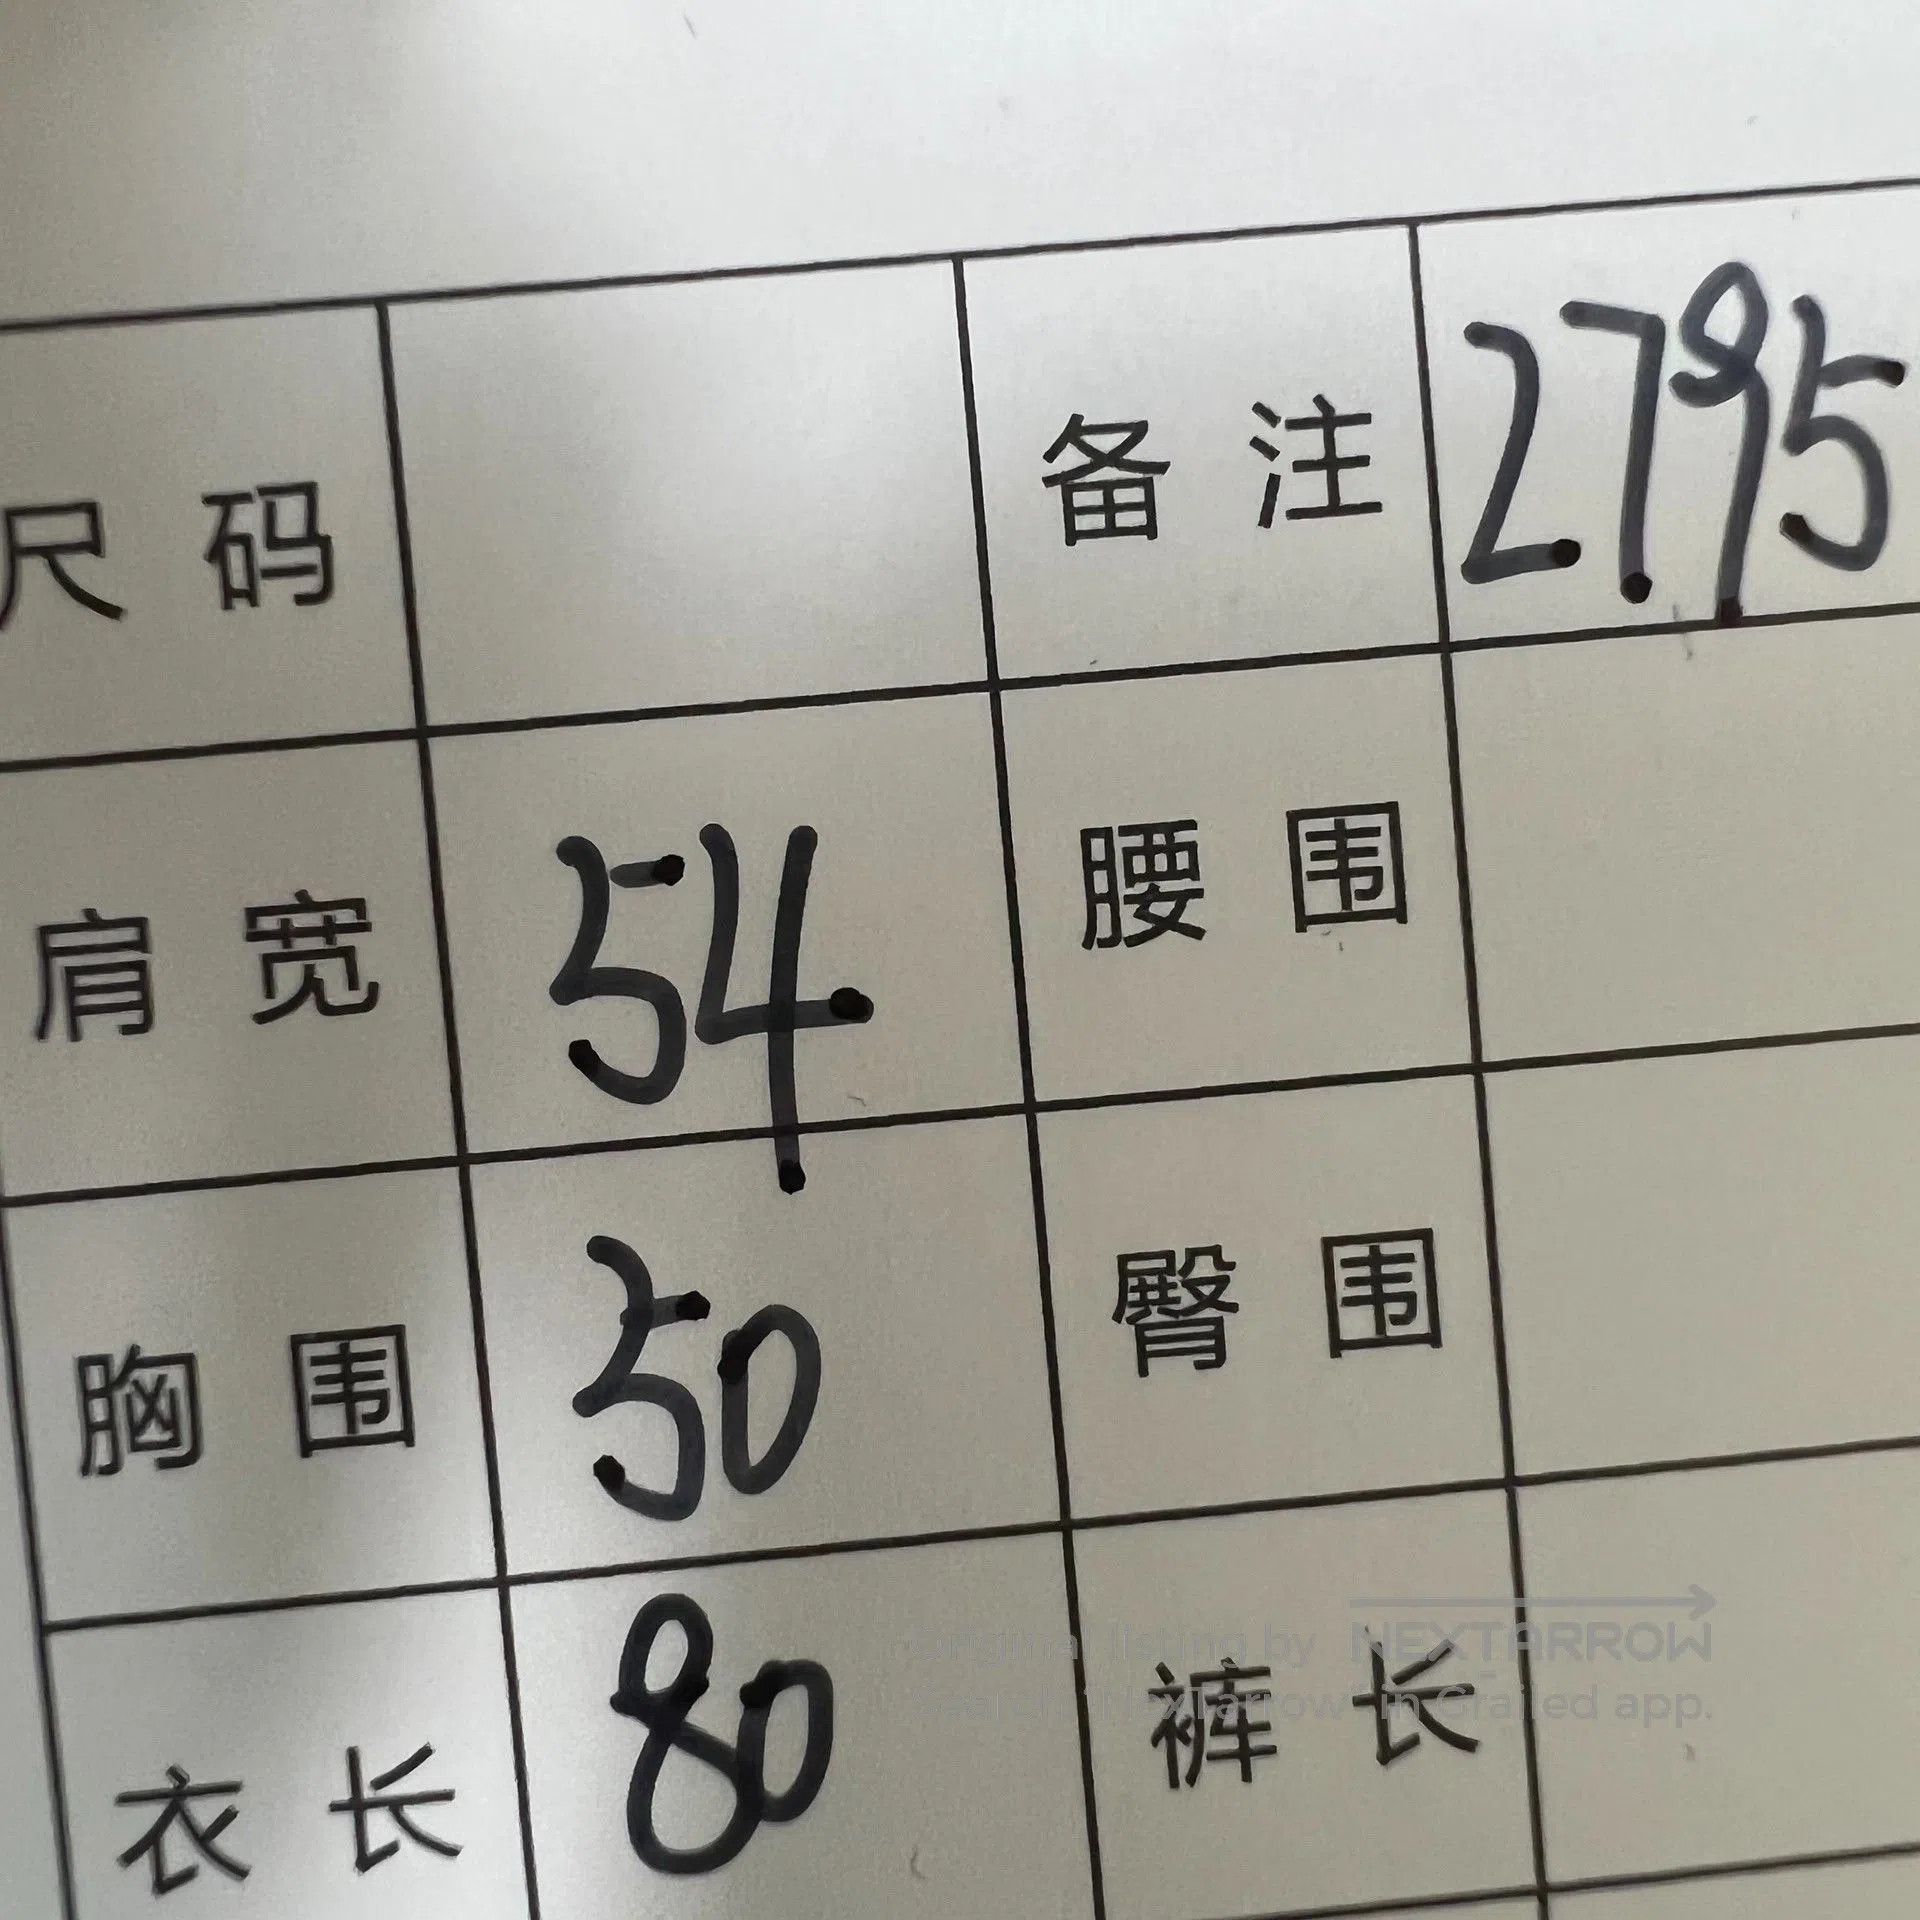 尺 码 备 注 2795
肩 宽 54 腰 围
胸 围 50 臀 围
衣 长 80 裤 长
Original listing by NEXTARROW
Search "NextArrow" in Grailed app.